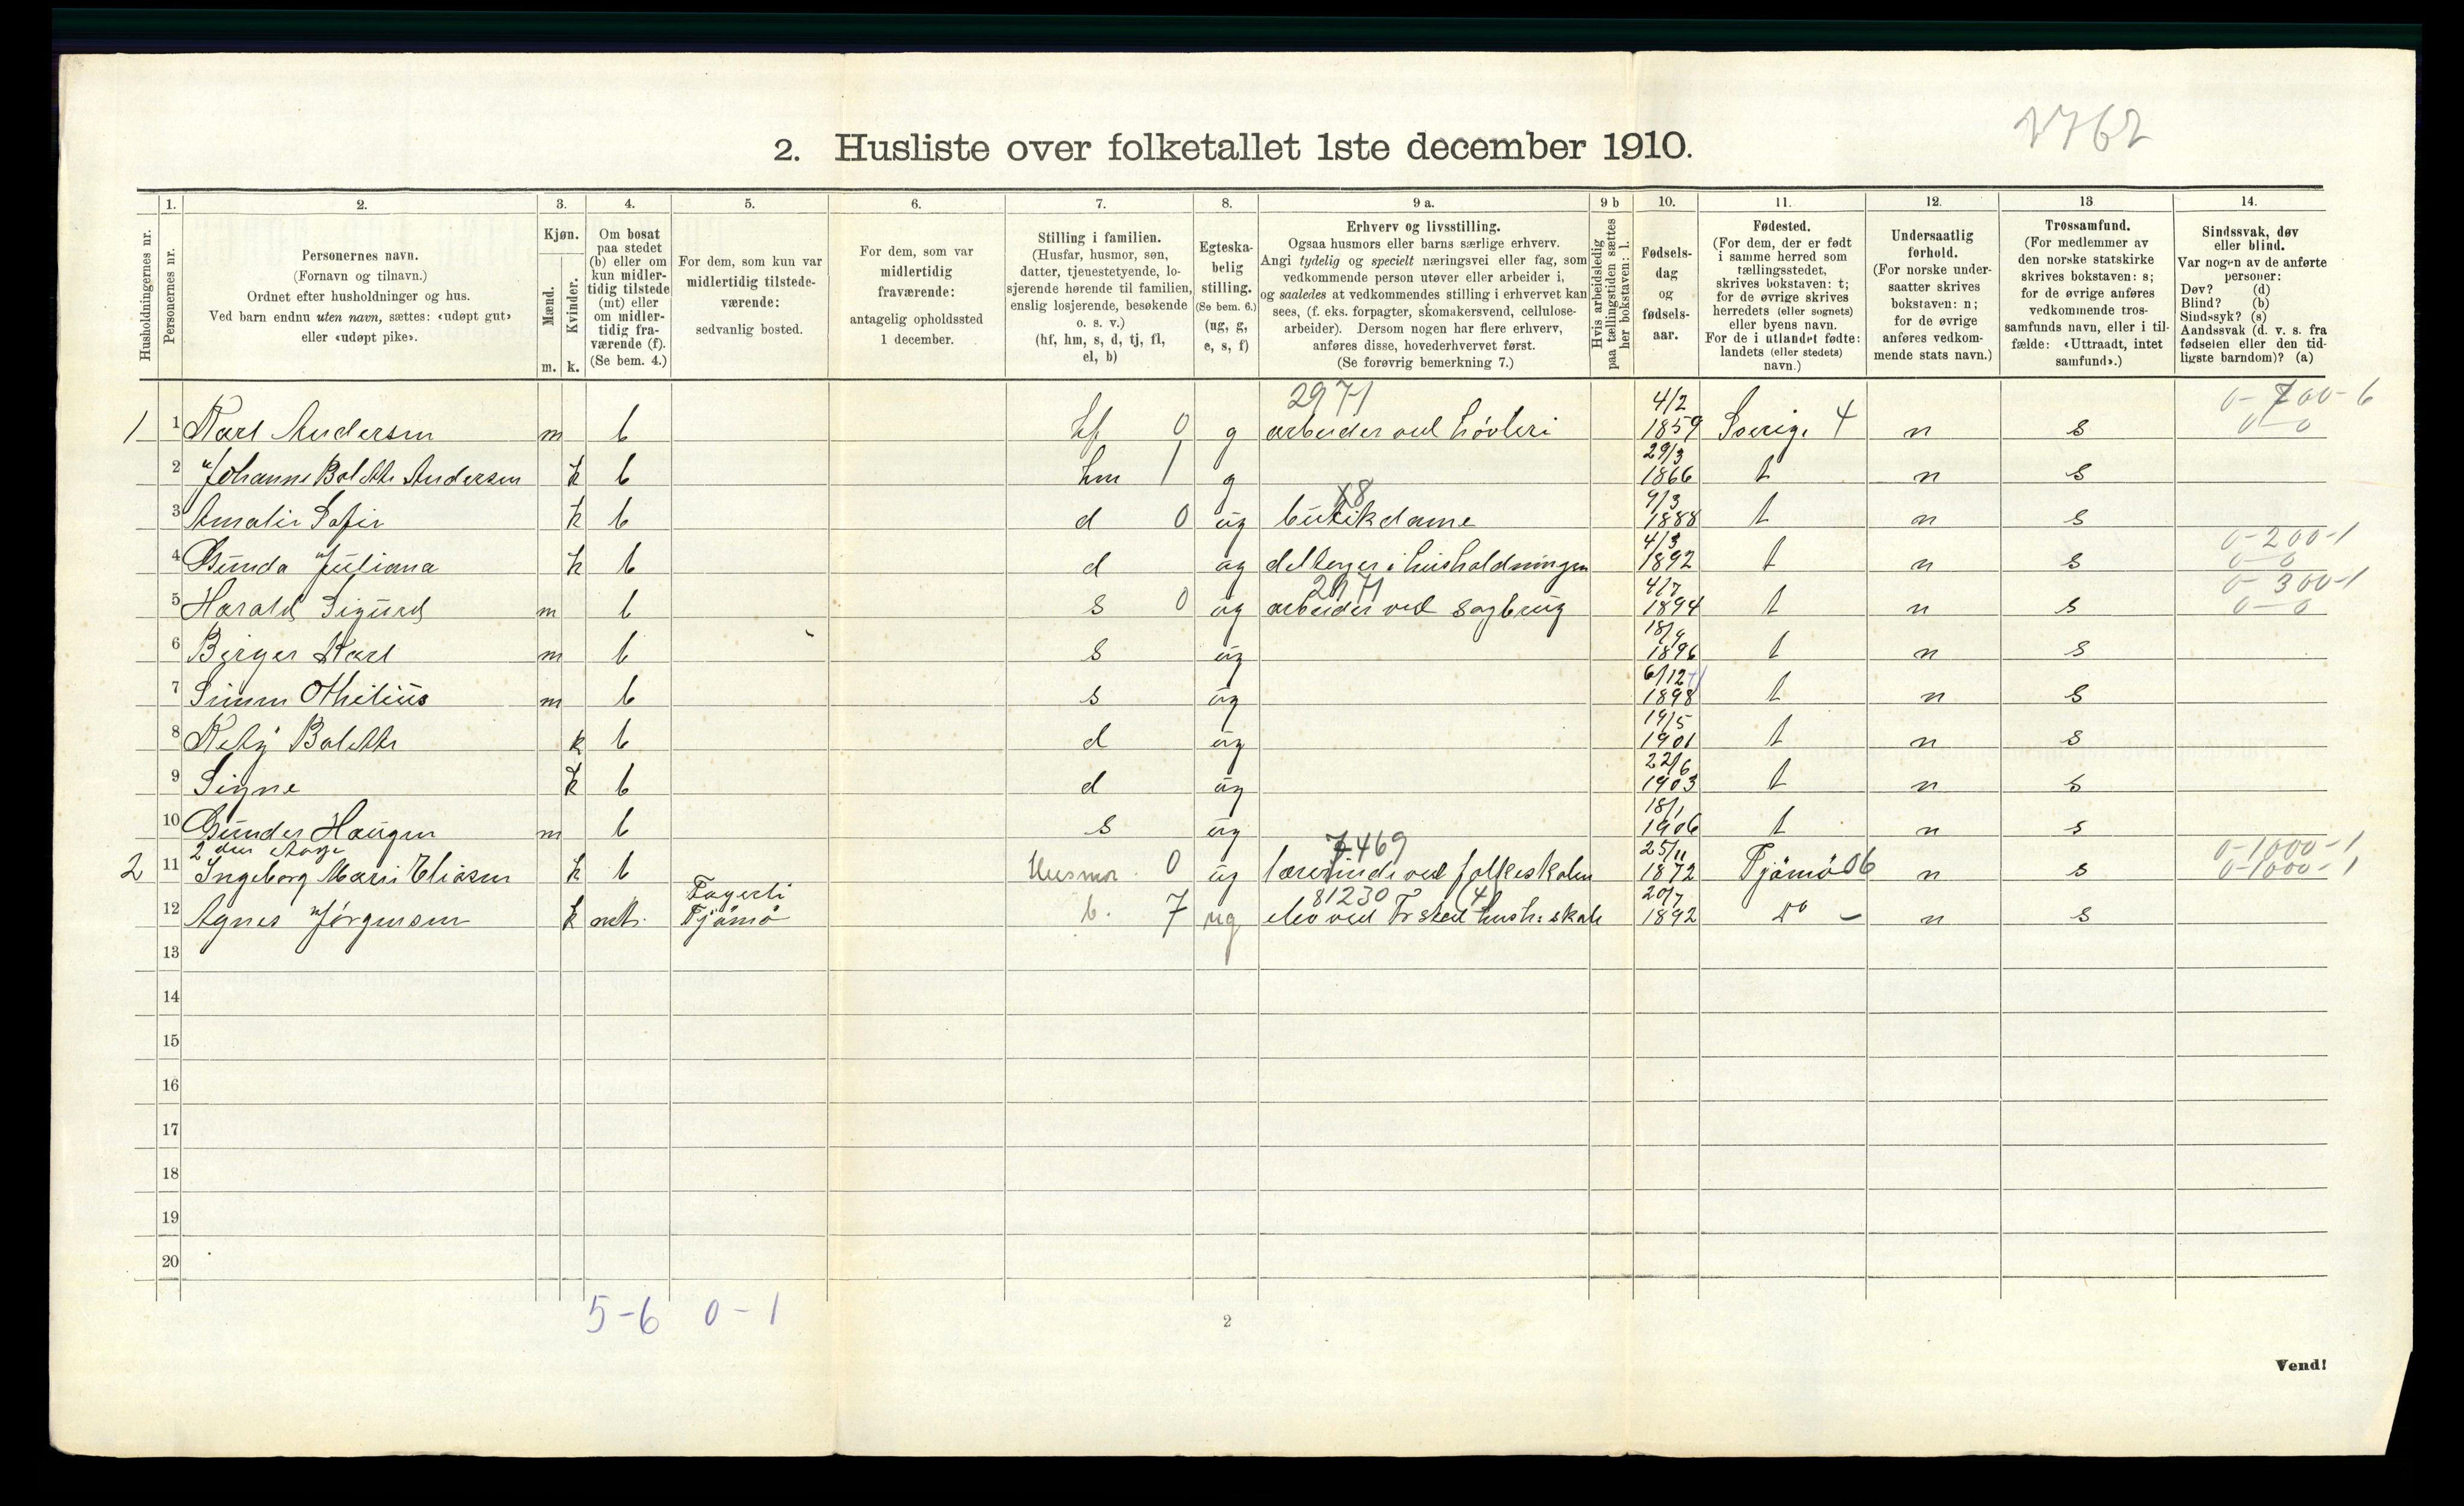 2762
2. Husliste over folketallet 1ste december 1910.
Husholdningernes nr.
1. Personernes nr.
2. Personernes navn.
(Fornavn og tilnavn.)
Ordnet efter husholdninger og hus.
Ved barn endnu uten navn, sættes: «udøpt gut»
eller «udøpt pike».
3. Kjøn.
Mænd. Kvinder.
m. k.
4. Om bosat
paa stedet
(b) eller om
kun midler-
tidig tilstede
(mt) eller
om midler-
tidig fra-
værende (f).
(Se bem. 4.)
5. For dem, som kun var
midlertidig tilstede-
værende:
sedvanlig bosted.
6. For dem, som var
midlertidig
fraværende:
antagelig opholdssted
1 december.
7. Stilling i familien.
(Husfar, husmor, søn,
datter, tjenestetyende, lo-
sjerende hørende til familien,
enslig losjerende, besøkende
o. s. v.)
(hf, hm, s, d, tj, fl,
el, b)
8. Egteska-
belig
stilling.
(Se bem. 6.)
(ug, g,
e, s, f)
9 a. Erhverv og livsstilling.
Ogsaa husmors eller barns særlige erhverv.
Angi tydelig og specielt næringsvei eller fag, som
vedkommende person utøver eller arbeider i,
og saaledes at vedkommendes stilling i erhvervet kan
sees, (f. eks. forpagter, skomakersvend, cellulose-
arbeider). Dersom nogen har flere erhverv,
anføres disse, hovederhvervet først.
(Se forøvrig bemerkning 7.)
9 b Hvis arbeidsledig
paa tællingstiden sættes
her bokstaven: l.
10. Fødsels-
dag
og
fødsels-
aar.
11. Fødested.
(For dem, der er født
i samme herred som
tællingsstedet,
skrives bokstaven: t;
for de øvrige skrives
herredets (eller sognets)
eller byens navn.
For de i utlandet fødte:
landets (eller stedets)
navn.)
12. Undersaatlig
forhold.
(For norske under-
saatter skrives
bokstaven: n;
for de øvrige
anføres vedkom-
mende stats navn.)
13 Trossamfund.
(For medlemmer av
den norske statskirke
skrives bokstaven: s;
for de øvrige anføres
vedkommende tros-
samfunds navn, eller i til-
fælde: «Uttraadt, intet
samfund».)
14. Sindssvak, døv
eller blind.
Var nogen av de anførte
personer:
Døv? (d)
Blind? (b)
Sindssyk? (s)
Aandssvak (d. v. s. fra
fødselen eller den tid-
ligste barndom)? (a)
2971 4/2 0-700-6
1 1 Karl Andersen m b hf 0 g arbeider ved høvleri 1859 Sverige 4 n s 0-0
29/3
2 Johanne Bolette Andersen k b hm 1 g 1866 t n s
9/3
3 Amalie Sofie k b d 0 ug butikdame 1888 t n s
4/3 0-200-1
4 Gunda Juliana k b d ug deltager i husholdningen 1892 t n s 0-0
2971 4/7 0-300-1
5 Harald Sigurd m b s 0 ug arbeider ved sagbrug 1894 t n s 0-0
18/9
6 Birger Karl m b s ug 1896 t n s
6/12
7 Simen Othilius m b s ug 1898 t n s
19/5
8 Kety Bolette k b d ug 1901 t n s
22/6
9 Signe k b d ug 1903 t n s
18/1
10 Gunder Haugen m b s ug 1906 t n s
2 den etage 7469 25/11 0-1000-1
2 11 Ingeborg Marie Eliasen k b Husmor 0 ug lærerinde ved folkeskolen 1872 Tjømø 06 n s 0-1000-1
Fagerli 81230 (4) 20/7
12 Agnes Jørgensen k mt. Tjømø b. 7 ug elev ved Fr.stad hush. skole 1892 Do - n s
13
14
15
16
17
18
19
20
5-6 0-1
2
Vend!